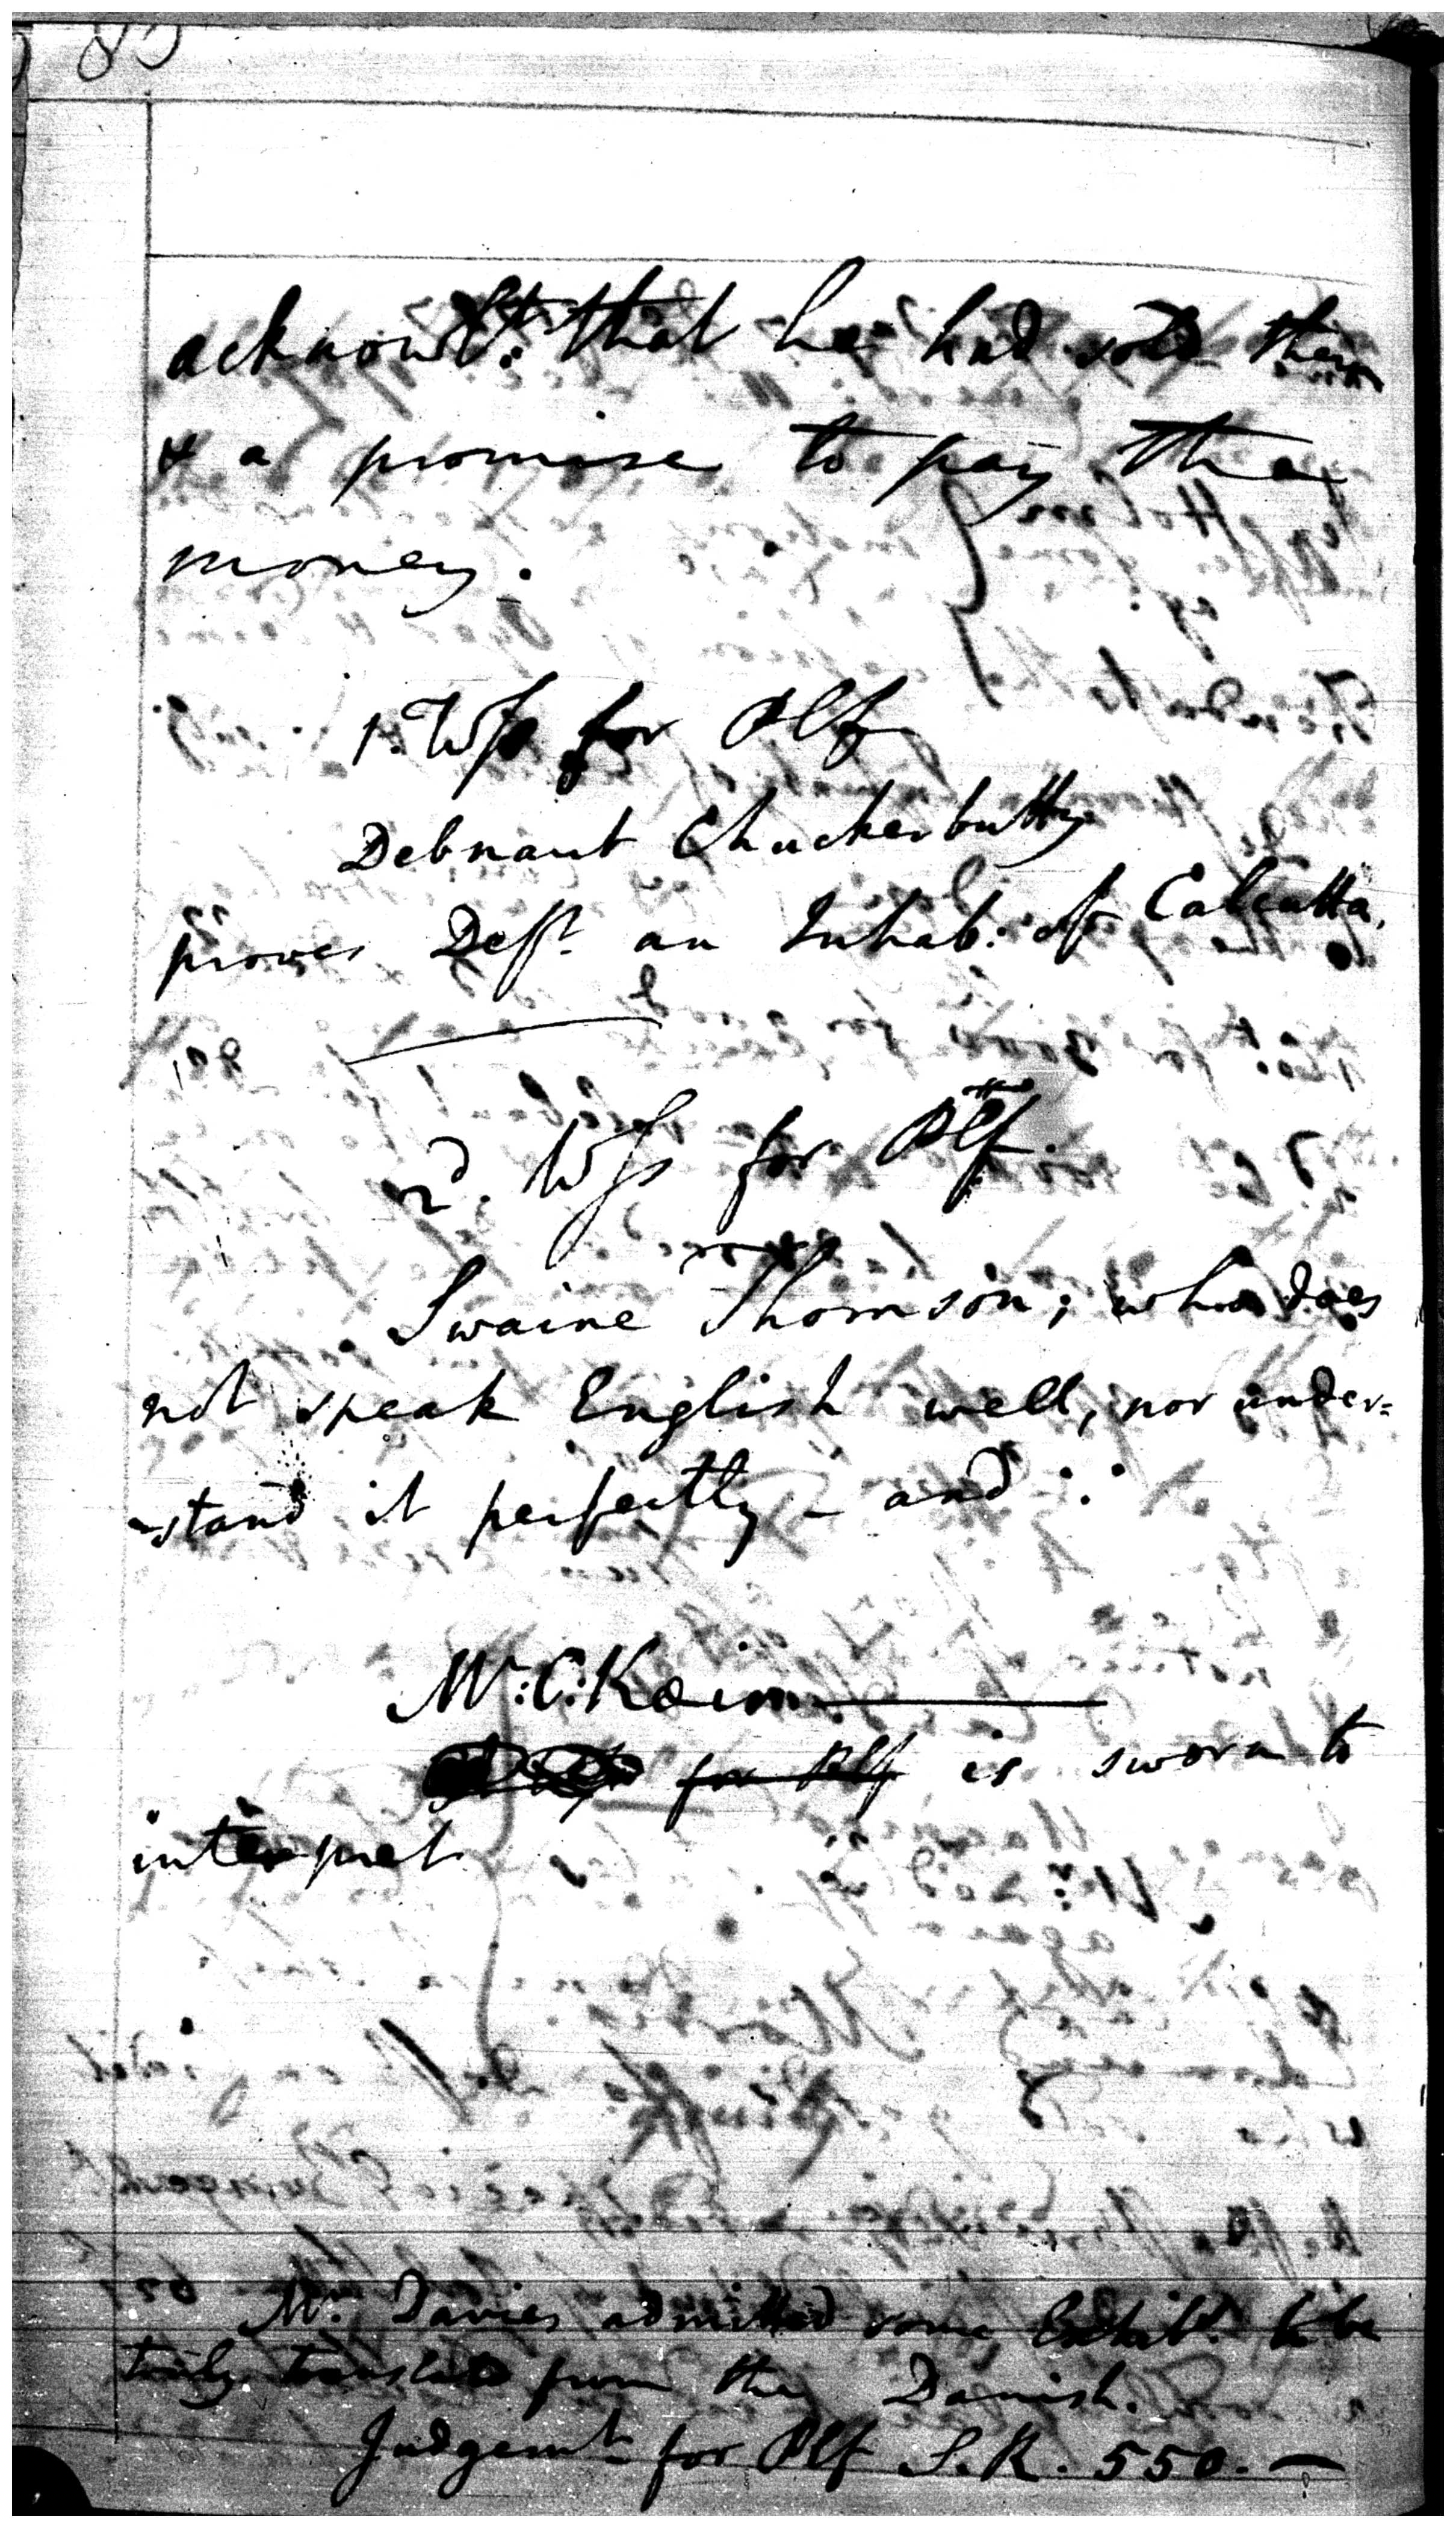 acknowlt: that he had sold them
& a promise to pay the
money.
1. Wss for Plf
Debnaut Chuckerbutty
proves Deft an Inhab: of Calcutta.
2d. Wss for Plff.
Swaine Thomson; who does
not speak English well, nor under=
-stand it perfectly - and ∴
Mr: C: Keim
for Plf is sworn to
interpret.
Mr. Davies admitted some Exhibts. to be
truly translated from the Danish.
Judgemt for Plf S.R. 550. —